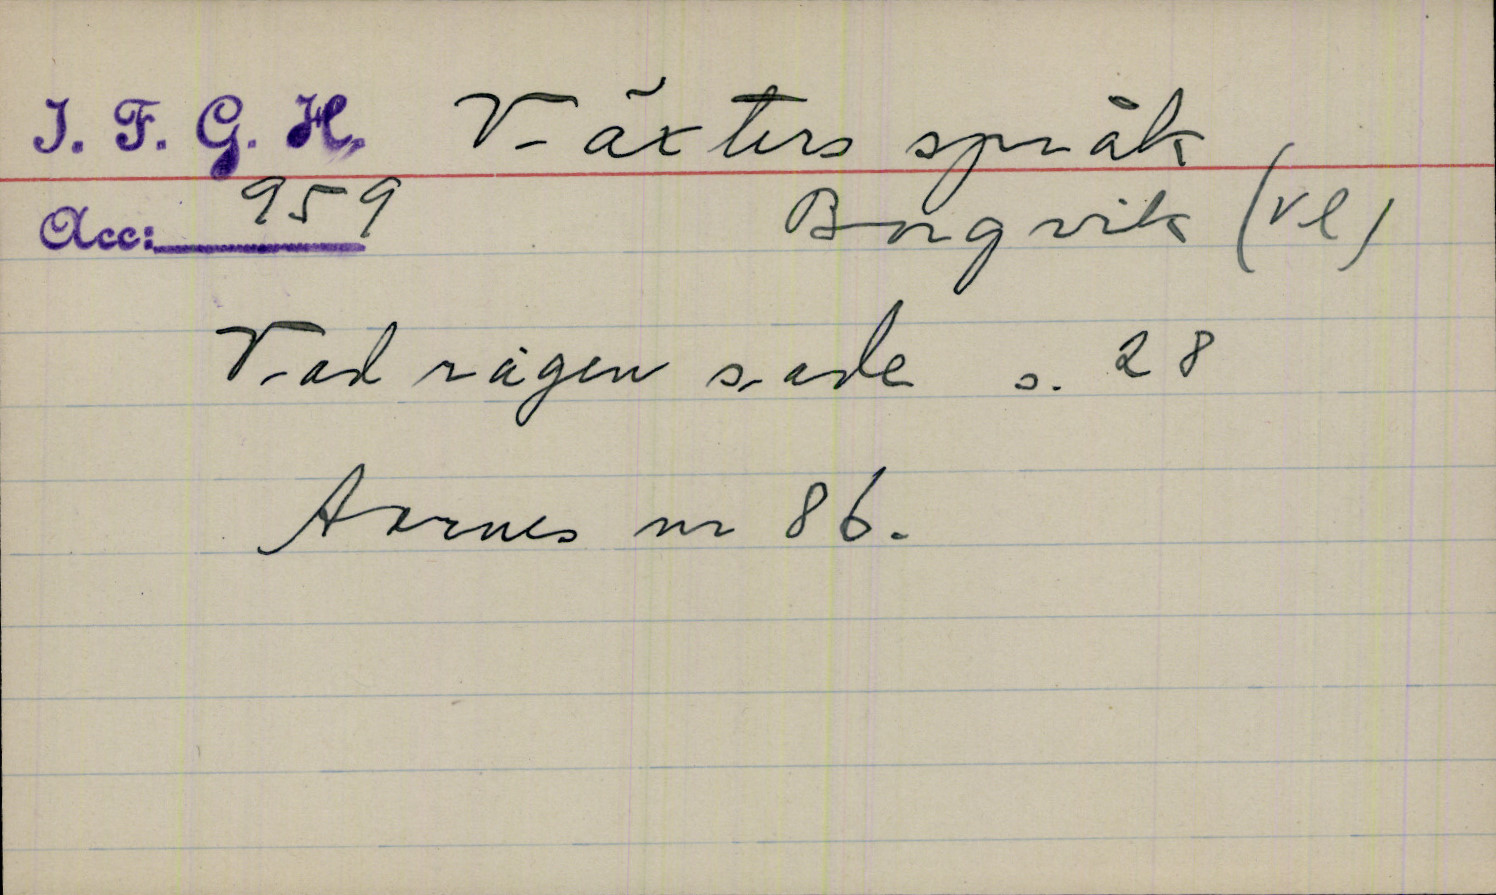 I. F. G. H. Växters språk
Acc: 959 Borgvik (Vl)
Vad rågen sade s. 28
Aarnes nr 86.